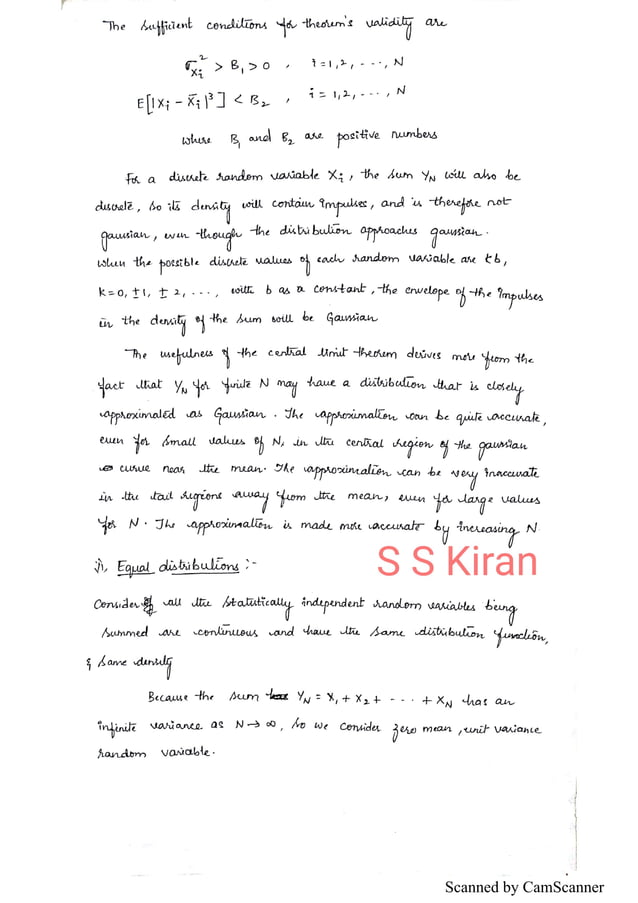 The sufficient conditions for theorem's validity are
σ²_Xi > B₁ > 0 , i = 1, 2, ---, N
E[|Xi - X̄i|³] < B₂ , i = 1, 2, ---, N
where B₁ and B₂ are positive numbers
For a discrete random variable Xi, the sum YN will also be
discrete, so its density will contain impulses, and is therefore not
gaussian, even though the distribution approaches gaussian.
When the possible discrete values of each random variable are kb,
k=0, ±1, ± 2, ---, with b as a constant, the envelope of the impulses
in the density of the sum will be Gaussian
The usefulness of the central limit theorem derives more from the
fact that YN for finite N may have a distribution that is closely
approximated as Gaussian. The approximation can be quite accurate,
even for small values of N, in the central region of the gaussian
curve near the mean. The approximation can be very inaccurate
in the tail regions away from the mean, even for large values
for N. The approximation is made more accurate by increasing N.
S S Kiran
i), Equal distributions :-
Consider all the statistically independent random variables being
summed are continuous and have the same distribution function,
& same density
Because the sum YN = X₁ + X₂ + --- + XN has an
infinite variance as N → ∞, so we consider zero mean, unit variance
random variable.
Scanned by CamScanner